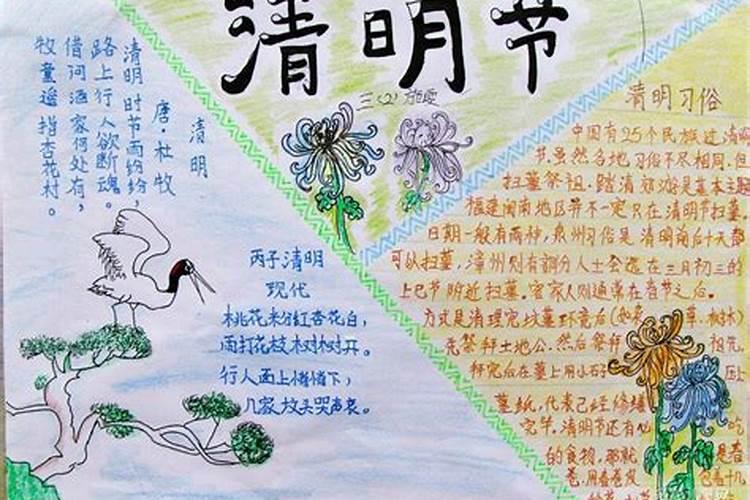 清明节
三(2)
清明
唐·杜牧
清明时节雨纷纷,
路上行人欲断魂。
借问酒家何处有,
牧童遥指杏花村。
丙子清明
现代
桃花粉红杏花白,
雨打花枝树树开。
行人面上悄悄下,
几家坟头哭声哀。
清明习俗
中国有25个民族过清明
节,虽然各地习俗不尽相同,但
扫墓祭祖、踏清郊游是基本主题
福建闽南地区并不一定只在清明节扫墓,
日期一般有两种,泉州习俗是清明前后十天都
可以扫墓,漳州则有部分人士会选在三月初三的
上巳节附近扫墓。客家人则通常在春节之后。
方式是清理完坟墓环境后(如杂 草、树木)
先祭拜土地公,然后祭拜 祖先,
拜完后在墓上用小石 压上
墓纸,代表已经修缮
完毕。清明节还有 吃
的食物,那就 是春
卷,用春卷皮 包着十几